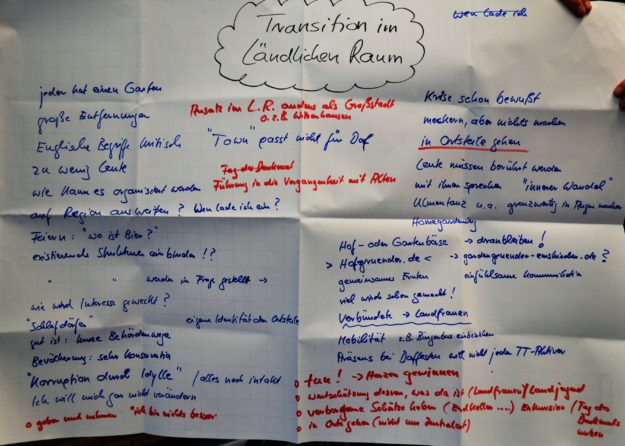 wen lade ich
Transition im
Ländlichen Raum
jeder hat einen Garten
große Entfernungen
Englische Begriffe kritisch
zu wenig Leute
wie kann es organisiert werden
auf Region ausweiten? Wen lade ich ein?
Feiern: "wo ist Bier?"
existierende Strukturen einbinden!?
" " werden in Frage gestellt →
wie wird Interesse geweckt?
"Schlafdörfer" eigene Identität der Ortsteile
gut ist: kurze Behördenwege
Bevölkerung: sehr konservativ
"Korruption durch Idylle" / alles noch intakt
Ich will mich gar nicht verändern
o geben und nehmen "ich bin nichts besser
Ansatz im L.R. anders als Großstadt
o. z.B. Witzenhausen
"Town" passt nicht für Dorf
Tag des Denkmal
Führung in die Vergangenheit mit Alten
Krise schon bewußt
meckern, aber nichts machen
in Ortsteile gehen
Leute müssen berührt werden
mit ihnen sprechen "innerer Wandel"
Ulmentanz u.a. grenzwertig in
Homegardening
Hof- oder Gartenbörse → dranbleiben!
> Hofgruender.de < → gaertengruenden-
gemeinsames Ernten einfühlsame Kommunikation
viel wird schon gemacht!
Verbündete → Landfrauen
Mobilität z.B. Bürgerbus einbeziehen
Präsenz bei Dorffesten will nicht jeder TT-Aktiver
o tun! → Herzen gewinnen
o wertschätzung dessen, was da ist (Landfrauen/Landjugend
o verborgene Schätze heben (Erdkeller ....) Exkursion / Tag des
Denkmals
nutzen
o in Orte gehen (nicht nur zentral)